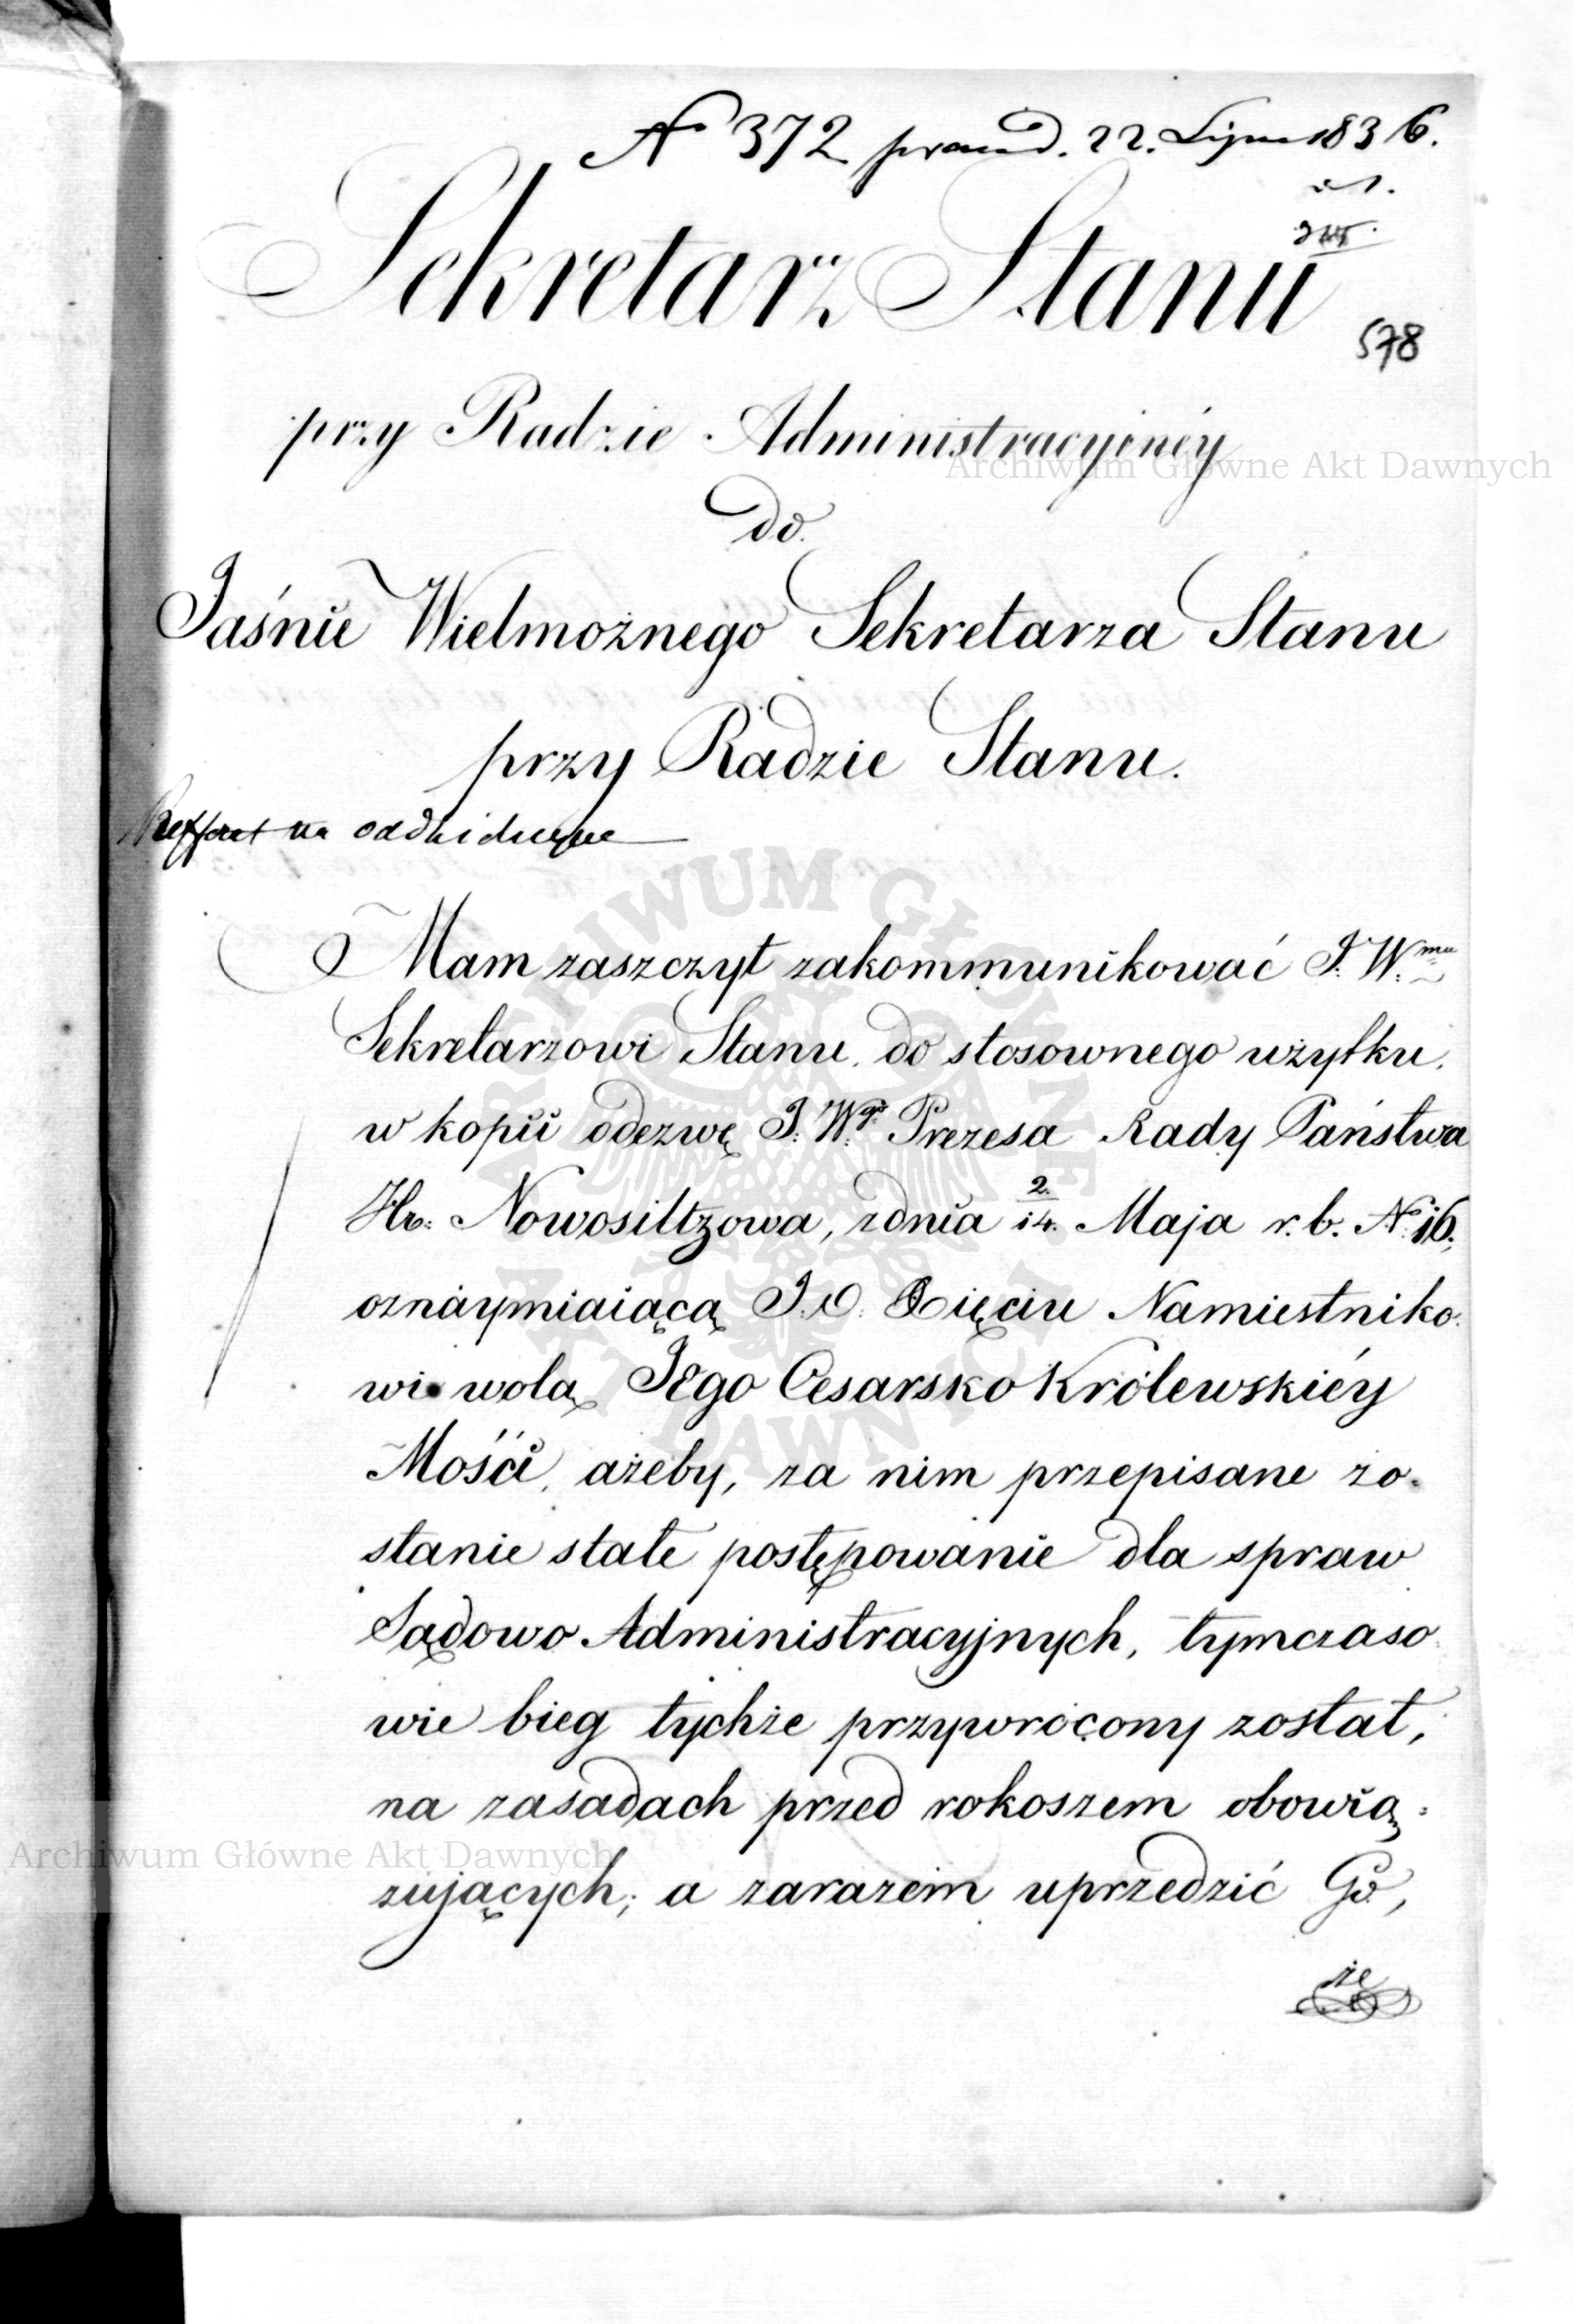 N 372 praes. d. 22. Lipca 1836.
Sekretarz Stanu
578
przy Radzie Administracyinéy
Archiwum Główne Akt Dawnych
do
Jaśnie Wielmożnego Sekretarza Stanu
przy Radzie Stanu.
Refferat na
Mam zaszczyt zakommunikować J. W.mu
Sekretarzowi Stanu, do stosownego użytku,
w kopii odezwę J. W.go Prezesa Rady Państwa
Hr: Nowosiltzowa, z dnia 2/14. Maja r. b. N. 16.,
oznaymiaiącą J. O. Xięciu Namiestniko-
wi wolą JEgo Cesarsko Królewskiéy
Mości, ażeby, za nim przepisane zo-
stanie stałe postępowanie dla spraw
Sądowo Administracyjnych, tymczaso-
wie bieg tychże przywrócony został,
na zasadach przed rokoszem obowią-
zujących; a zarazem uprzedzić Go,
że
ARCHIWUM GŁÓWNE AKT DAWNYCH
Archiwum Główne Akt Dawnych